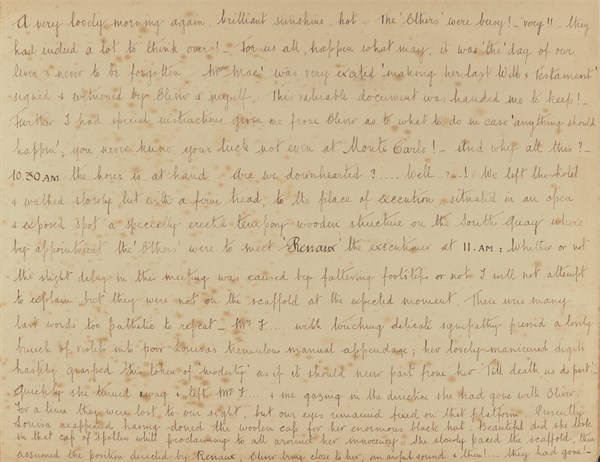 A very lovely morning again, brilliant sunshine, hot - The 'Others' were busy! - very!! - they
had indeed a lot to think over! - For us all, happen what may, it was 'the' day of our
lives & never to be forgotten Mrs 'Mac' was very excited 'making her last Will & Testament'
signed & witnessed by Oliver & myself. The valuable document was handed me to keep! -
Further I had special instructions given me from Oliver as to what to do in case 'anything should
happen', you never know your luck not even at Monte Carlo! - And why all this? -
10.30 AM. the hour is at hand - Are we downhearted? .... Well ? - .! We left the hotel
& walked slowly but with a firm head, to the place of execution, situated in an open
& exposed spot a specially erected temporary wooden structure on the South Quay where
by appointment the 'Others' were to meet 'Renaux' the executioner at 11. AM: Whether or not
the slight delay in this meeting was caused by faltering footsteps or not I will not attempt
to explain but they were not on the scaffold at the expected moment. There were many
last words too pathetic to repeat - Mr F .... with touching delicate sympathy pressed a lovely
bunch of violets into poor Louisa's tremulous manual appendage; her lovely manicured digits
hastily grasped this token of 'modesty' as if it should never part from her 'Till death us do part' -
Quickly she turned away & left Mr F .... & me gazing in the direction she had gone with Oliver.
for a time they were lost, to our sight, but our eyes remained fixed on that platform. Presently
Louisa reappeared having donned the woolen cap for her enormous black hat. Beautiful did she look
in that cap of spotless white proclaiming to all around her innocency. She slowly paced the scaffold, then
assumed the position directed by Renaux, Oliver being close to her, an awful sound & then!... they had gone! -